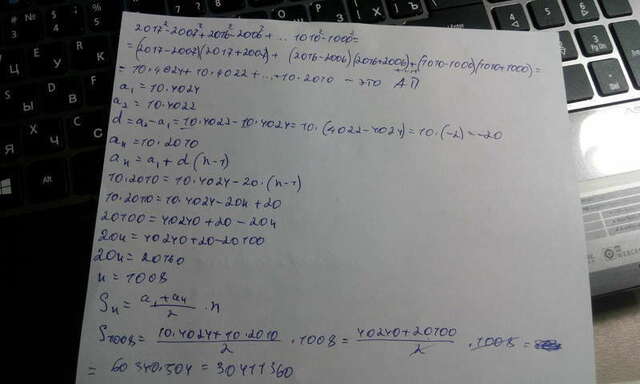 2017²-2007²+2016²-2006²+...1010²-1000²=
=(2017-2007)(2017+2007)+(2016-2006)(2016+2006)+(1010-1000)(1010+1000)=
=10.4024+10.4022+...+10.2010 - это АП
a₁=10.4024
a₂=10.4022
d=a₂-a₁=10.4022-10.4024=10.(4022-4024)=10.(-2)=-20
aₙ=10.2010
aₙ=a₁+d(n-1)
10.2010=10.4024-20.(n-1)
10.2010=10.4024-20n+20
20100=40240+20-20n
20n=40240+20-20100
20n=20160
n=1008
Sₙ=a₁+aₙ/2 .n
S₁₀₀₈=10.4024+10.2010/2 .1008=40240+20100/2 .1008=
=60340.504=30411360
Alt